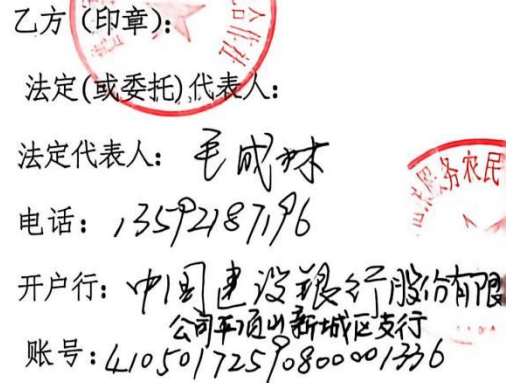 乙方（印章）：
法定(或委托)代表人：
法定代表人：毛成林
电话：13592187196
开户行：中国建设银行股份有限
公司平顶山新城区支行
账号：41050172590800001336
服务农民